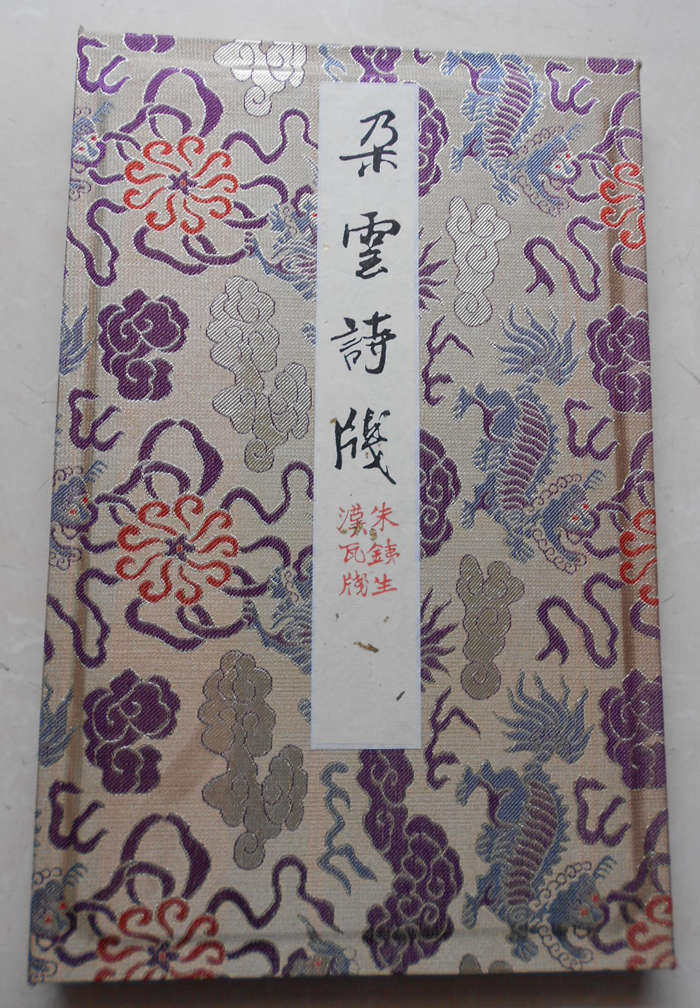 朵雲詩牋
朱銕生
漢瓦牋